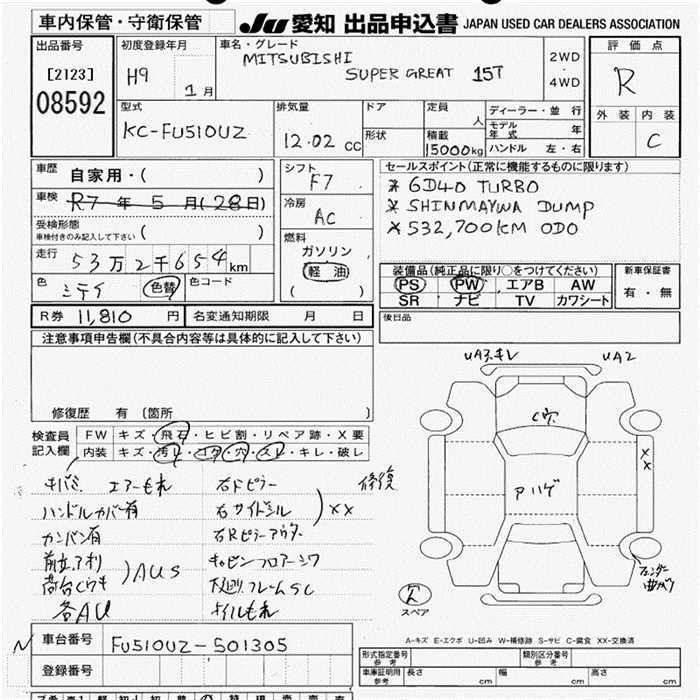 車内保管・守衛保管
JU 愛知 出品申込書 JAPAN USED CAR DEALERS ASSOCIATION
出品番号
[2123]
08592
初度登録年月
H9
1月
車名・グレード
MITSUBISHI
SUPER GREAT 15T
2WD
・
4WD
評価点
R
外装 内装
C
型式
KC-FU510UZ
排気量
12.02 CC
ドア
形状
定員
人
積載
15000kg
ディーラー・並行
モデル年式 年
ハンドル 左・右
車歴
自家用・( )
車検
R7年5月(28日)
受検形態
車検付きのみ記入して下さい ( )
走行
53万2千654km
色
シテイ
色替
色コード
シフト
F7
冷房
AC
燃料
ガソリン
軽油
( )
セールスポイント(正常に機能するものに限ります)
* 6D40 TURBO
* SHINMAYWA DUMP
* 532,700KM ODO
装備品(純正品に限り○をつけてください)
PS PW エアB AW
SR ナビ TV カワシート
新車保証書
有・無
R券 11,810 円
名変通知期限 月 日
後日品
注意事項申告欄(不具合内容等は具体的に記入して下さい)
修復歴 有 (箇所 )
検査員
記入欄
FW キズ・飛石・ヒビ割・リペア跡・X要
内装 キズ・汚レ・コゲ・穴・スレ・キレ・破レ
キバミ エアーもれ
ハンドルカバー有
カンバン有
AUS
各AU
右Fピラー
右サイドシル
右Rピラーアウター
XX
修復
キャビンフロアーシワ
オイルもれ
UA3.キレ
UA2
C穴
アハゲ
XX
フェンダー
曲がり
穴
スペア
A-キズ E-エクボ U-凹み W-補修跡 S-サビ C-腐食 XX-交換済
N
車台番号
FU510UZ-501305
登録番号
型式指定番号
参考
類別区分番号
参考
車庫証明用
参考
長さ
cm
幅
cm
高さ
cm